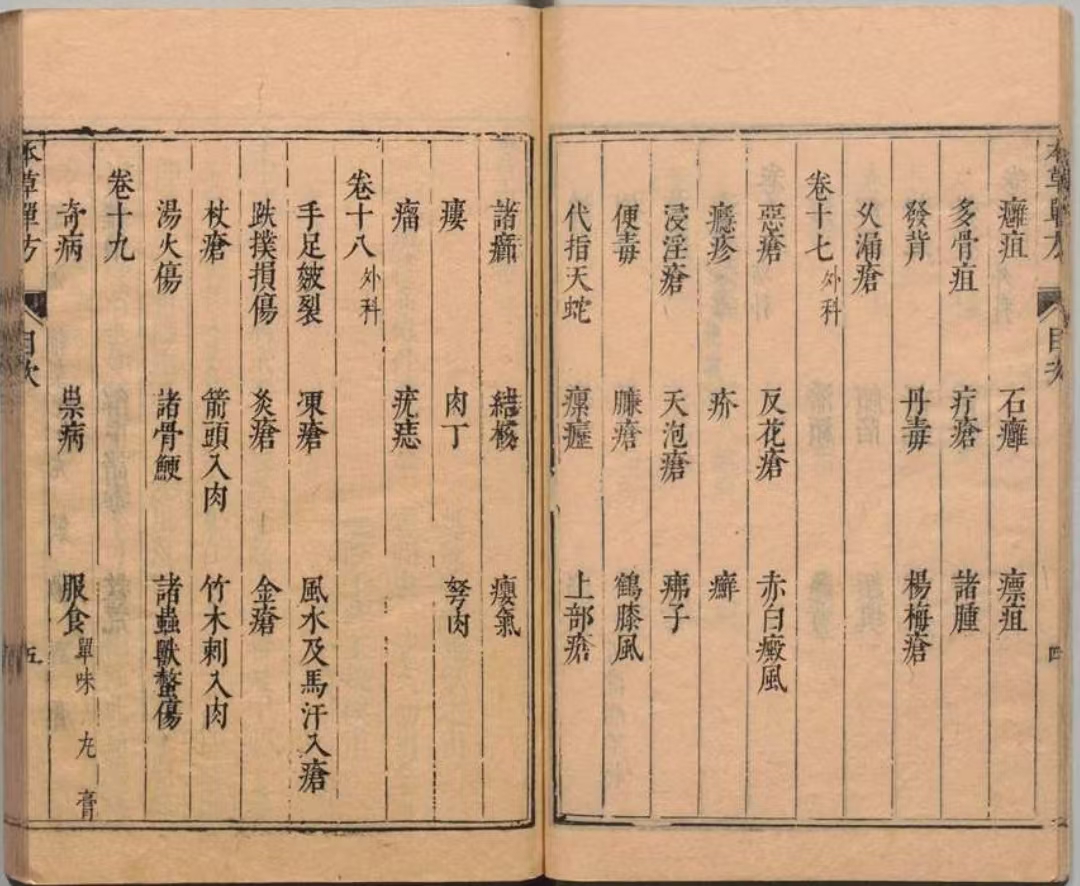 目次 四
癰疽 石癰 瘭疽
多骨疽 疔瘡 諸腫
發背 丹毒 楊梅瘡
乆漏瘡
卷十七 外科
惡瘡 反花瘡 赤白癜風
癮疹 疥 癬
浸淫瘡 天泡瘡 疿子
便毒 臁瘡 鶴膝風
代指天蛇 上部瘡
諸 結核 癭氣
瘻 肉丁 努肉
瘤 疣痣
卷十八 外科
手足皴裂 凍瘡 風水及馬汗入瘡
跌撲損傷 灸瘡 金瘡
杖瘡 箭頭入肉 竹木刺入肉
湯火傷 諸骨鯁 諸蟲獸螫傷
卷十九
奇病 祟病 服食 單味 丸 膏
本草單方 目次 五